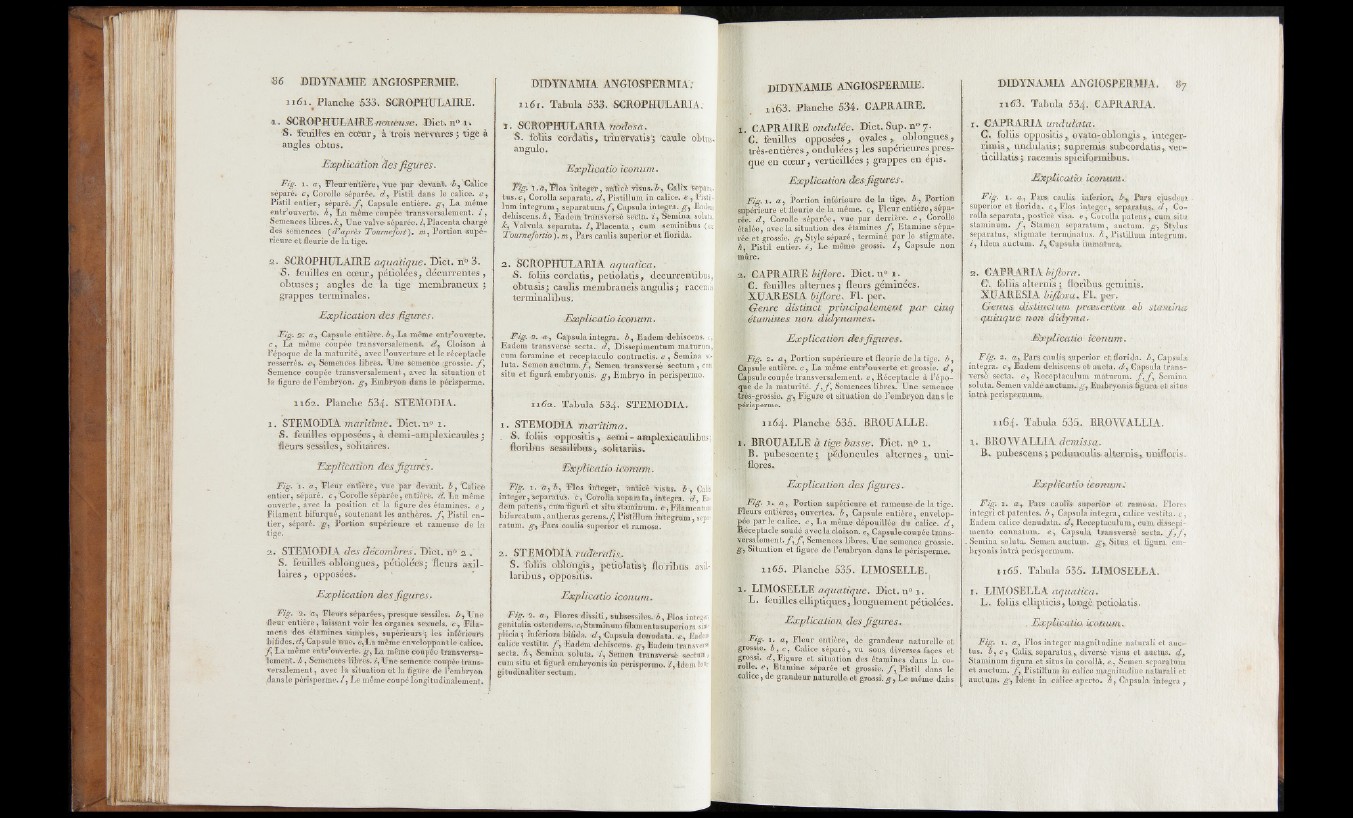 86 DIDYNAMIE ANGIOSPERMIE.
1161. Planche 533. SCROPHULAIRE.
1. SCROPHULAIRE noueuse. Dict. n° 1.
S. feuilles en cœur, à trois nervures ; tige à
angles obtus.
Explication des figures.
Fig. 1. a, Fleur entière, vue par devant. b, Calice
séparé. c, Corolle séparée. d, Pistil dans le calice. e,
Pistil entier, séparé. f, Capsule entière. g, La même
entr'ouverte. h, La même coupée transversalement. i,
Semences libres. k, Une valve séparée. l, Placenta chargé
des semences (d'après Tournefort). m, Portion supé-
rieure et fleurie de la tige.
2. SCROPHULAIRE aquatique. Dict. n° 3.
S. feuilles en cœur, pétiolées, décurrentes,
obtuses ; angles de la tige membraneux ;
grappes terminales.
Explication des figures.
Fig. 2. a, Capsule entière. b, La même entr'ouverte.
c, La même coupée transversalement. d, Cloison à
l'époque de la maturité, avec l'ouverture et le réceptacle
resserrés. e, Semences libres. Une semence grossie. f,
Semence coupée transversalement, avec la situation et
la figure de l'embryon. g, Embryon dans le périsperme.
1162. Planche 534. STEMODIA.
1. STEMODIA maritime. Dict. n° 1.
S. feuilles opposées, à demi-amplexicaules ;
fleurs sessiles, solitaires.
Explication des figures.
Fig. 1. a, Fleur entière, vue par devant. b, Calice
entier, séparé. c, Corolle séparée, entière. d, La même
ouverte, avec la position et la figure des étamines. e,
Filament bifurqué, soutenant les anthères. f, Pistil en-
tier, séparé. g, Portion supérieure et rameuse de la
tige.
2. STEMODIA des décombres. Dict. n° 2.
S. feuilles oblongues, pétiolées ; fleurs axil-
laires, opposées.
Explication des figures.
Fig. 2. a, Fleurs séparées, presque sessiles. b, Une
fleur entière, laissant voir les organes sexuels. c, Fila-
mens des étamines simples, supérieurs ; les inférieurs
bifides. d, Capsule nue. e, La même enveloppant le calice.
f, La même entr'ouverte. g, La même coupée transversa-
lement. h, Semences libres. i, Une semence coupée trans-
versalement, avec la situation et la figure de l'embryon
dans le périsperme. l, Le même coupé longitudinalement.
DIDYNAMIA ANGIOSPERMIA.
1161. Tabula 533. SCROPHULARIA.
1. SCROPHULARIA nodosa.
S. foliis cordatis, trinervatis ; caule obtus-
angulo.
Explicatio iconum.
Fig. 1. a, Flos integer, anticè visus. b, Calix separa-
tus. c, Corolla separata. d, Pistillum in calice. e, Pistil-
lum integrum, separatum. f, Capsula integra. g, Eadem
dehiscens. h, Eadem transversè secta. i, Semina soluta.
k, Valvula separata. l, Placenta, cum seminibus (ex
Tournefortio). m, Pars caulis superior et florida.
2. SCROPHULARIA aquatica.
S. foliis cordatis, petiolatis, decurrentibus,
obtusis ; caulis membraneis angulis ; racemis
terminalibus.
Explicatio iconum.
Fig. 2. a, Capsula integra. b, Eadem dehiscens. c,
Eadem transversè secta. d, Dissepimentum maturum,
cum foramine et receptaculo contractis. e, Semina so-
luta. Semen auctum. f, Semen transversè sectum, cum
situ et figurâ embryonis. g, Embryo in perispermo.
1162. Tabula 534. STEMODIA.
1. STEMODIA maritima.
S. foliis oppositis, semi-amplexicaulibus ;
floribus sessilibus, solitariis.
Explicatio iconum.
Fig. 1. a, Flos integer, anticè visus. b, Calix
integer, separatus. c, Corolla separata, integra. d, Ea-
dem patens, cum figurâ et situ staminum. e, Filamentum
bifurcatum, antheras gerens. f, Pistillum integrum, sepa-
ratum. g, Pars caulis superior et ramosa.
2. STEMODIA ruderalis.
S. foliis oblongis, petiolatis ; floribus axil-
laribus, oppositis.
Explicatio iconum.
Fig. 2. a, Flores dissiti, subsessiles. b, Flos integer
genitalia ostendens. c, Staminum filamenta superiora sim-
plicia ; inferiora bifida. d, Capsula denudata. e, Eadem
calice vestita. f, Eadem dehiscens. g, Eadem transversè
secta. h, Semina soluta. i, Semen transversè sectum,
cum situ et figurâ embryonis in perispermo. l, Idem lon-
gitudinaliter sectum.
DIDYNAMIE ANGIOSPERMIE.
1163. Planche 534. CAPRAIRE.
1. CAPRAIRE ondulée. Dict. Sup. n° 7.
C. feuilles opposées, ovales, oblongues,
très-entières, ondulées ; les supérieures pres-
que en cœur, verticillées ; grappes en épis.
Explication des figures.
Fig. 1. a, Portion inférieure de la tige. b, Portion
supérieure et fleurie de la même. c, Fleur entière, sépa-
rée. d, Corolle séparée, vue par derrière. e, Corolle
étalée, avec la situation des étamines. f, Etamine sépa-
rée et grossie. g, Style séparé, terminé par le stigmate.
h, Pistil entier. i, Le même grossi. l, Capsule non
mûre.
2. CAPRAIRE biflore. Dict. n° 1.
C. feuilles alternes ; fleurs géminées.
XUARESIA biflore. Fl. per.
Genre distinct principalement par cinq
étamines non didynames.
Explication des figures.
Fig. 2. a, Portion supérieure et fleurie de la tige. b,
Capsule entière. c, La même entr'ouverte et grossie. d,
Capsule coupée transversalement. e, Réceptacle à l'épo-
que de la maturité. f, f, Semences libres. Une semence
très-grossie. g, Figure et situation de l'embryon dans le
périsperme.
1164. Planche 535. BROUALLE.
1. BROUALLE à tige basse. Dict. n° 1.
B. pubescente ; pédoncules alternes, uni-
flores.
Explication des figures.
Fig. 1. a, Portion supérieure et rameuse de la tige.
Fleurs entières, ouvertes. b, Capsule entière, envelop-
pée par le calice. c, La même dépouillée du calice. d,
Réceptacle soudé avec la cloison. e, Capsule coupée trans-
versalement. f, f, Semences libres. Une semence grossie.
g, Situation et figure de l'embryon dans le périsperme.
1165. Planche 535. LIMOSELLE.
1. LIMOSELLE aquatique. Dict. n° 1.
L. feuilles elliptiques, longuement pétiolées.
Explication des figures.
Fig. 1. a, Fleur entière, de grandeur naturelle et
grossie. b, c, Calice séparé, vu sous diverses faces et
grossi. d, Figure et situation des étamines dans la co-
rolle. e, Etamine séparée et grossie. f, Pistil dans le
calice, de grandeur naturelle et grossi. g, Le même dans
DIDYNAMIA ANGIOSPERMIA. 87
1163. Tabula 534. CAPRARIA.
1. CAPRARIA undulata.
C. foliis oppositis, ovato-oblongis, integer-
rimis, undulatis ; supremis subcordatis, ver-
ticillatis ; racemis spiciformibus.
Explicatio iconum.
Fig. 1. a, Pars caulis inferior. b, Pars ejusdem
superior et florida. c, Flos integer, separatus. d, Co-
rolla separata, posticè visa. e, Corolla patens, cum situ
staminum. f, Stamen separatum, auctum. g, Stylus
separatus, stigmate terminatus. h, Pistillum integrum.
i, Idem auctum. l, Capsula immatura.
2. CAPRARIA biflora.
C. foliis alternis ; floribus geminis.
XUARESIA biflora. Fl. per.
Genus distinctum præsertim ob stamina
quinque non didyma.
Explicatio iconum.
Fig. 2. a, Pars caulis superior et florida. b, Capsula
integra. c, Eadem dehiscens et aucta. d, Capsula trans-
versè secta. e, Receptaculum maturum. f, f, Semina
soluta. Semen valdè auctum. g, Embryonis figura et situs
intrà perispermum.
1164. Tabula 535. BROWALLIA.
1. BROWALLIA demissa.
B. pubescens ; pedunculis alternis, unifloris.
Explicatio iconum.
Fig. 1. a, Pars caulis superior et ramosa. Flores
integri et patentes. b, Capsula integra, calice vestita. c,
Eadem calice denudata. d, Receptaculum, cum dissepi-
mento connatum. e, Capsula transversè secta. f, f,
Semina soluta. Semen auctum. g, Situs et figura em-
bryonis intrà perispermum.
1165. Tabula 535. LIMOSELLA.
1. LIMOSELLA aquatica.
L. foliis ellipticis, longè petiolatis.
Explicatio iconum.
Fig. 1. a, Flos integer magnitudine naturali et auc-
tus. b, c, Calix separatus, diversè visus et auctus. d,
Staminum figura et situs in corollâ. e, Semen separatum
et auctum. f, Pistillum in calice magnitudine naturali et
auctum. g, Idem in calice aperto. h, Capsula integra,